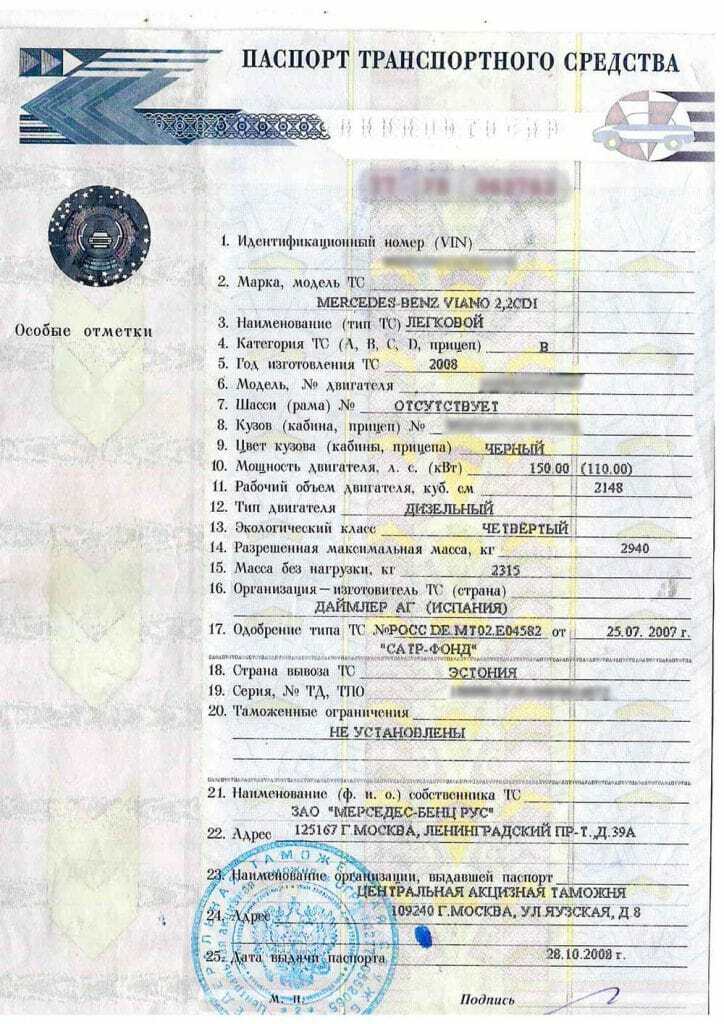 ПАСПОРТ ТРАНСПОРТНОГО СРЕДСТВА
1. Идентификационный номер (VIN)
2. Марка, модель ТС
MERCEDES-BENZ VIANO 2,2CDI
Особые отметки
3. Наименование (тип ТС) ЛЕГКОВОЙ
4. Категория ТС (A, B, C, D, прицеп) B
5. Год изготовления ТС 2008
6. Модель, № двигателя
7. Шасси (рама) № ОТСУТСТВУЕТ
8. Кузов (кабина, прицеп) №
9. Цвет кузова (кабины, прицепа) ЧЕРНЫЙ
10. Мощность двигателя, л. с. (кВт) 150.00 (110.00)
11. Рабочий объем двигателя, куб. см 2148
12. Тип двигателя ДИЗЕЛЬНЫЙ
13. Экологический класс ЧЕТВЁРТЫЙ
14. Разрешенная максимальная масса, кг 2940
15. Масса без нагрузки, кг 2315
16. Организация — изготовитель ТС (страна)
ДАЙМЛЕР АГ (ИСПАНИЯ)
17. Одобрение типа ТС №РОСС DE.МТ02.Е04582 от 25.07. 2007 г.
"САТР-ФОНД"
18. Страна вывоза ТС ЭСТОНИЯ
19. Серия, № ТД, ТПО
20. Таможенные ограничения
НЕ УСТАНОВЛЕНЫ
21. Наименование (ф. и. о.) собственника ТС
ЗАО "МЕРСЕДЕС-БЕНЦ РУС"
22. Адрес 125167 Г.МОСКВА, ЛЕНИНГРАДСКИЙ ПР-Т.,Д.39А
23. Наименование организации, выдавшей паспорт
ЦЕНТРАЛЬНАЯ АКЦИЗНАЯ ТАМОЖНЯ
24. Адрес 109240 Г.МОСКВА, УЛ ЯУЗСКАЯ, Д.8
25. Дата выдачи паспорта 28.10.2008 г.
М. П. Подпись